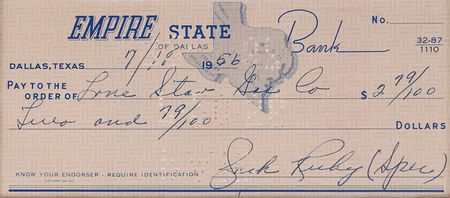 EMPIRE STATE Bank No.
OF DALLAS 32-87
1110
DALLAS, TEXAS 7/10 1956
PAY TO THE
ORDER OF Lone Star Gas Co $ 2 79/100
Two and 79/100 DOLLARS
Jack Ruby (Spec)
KNOW YOUR ENDORSER - REQUIRE IDENTIFICATION